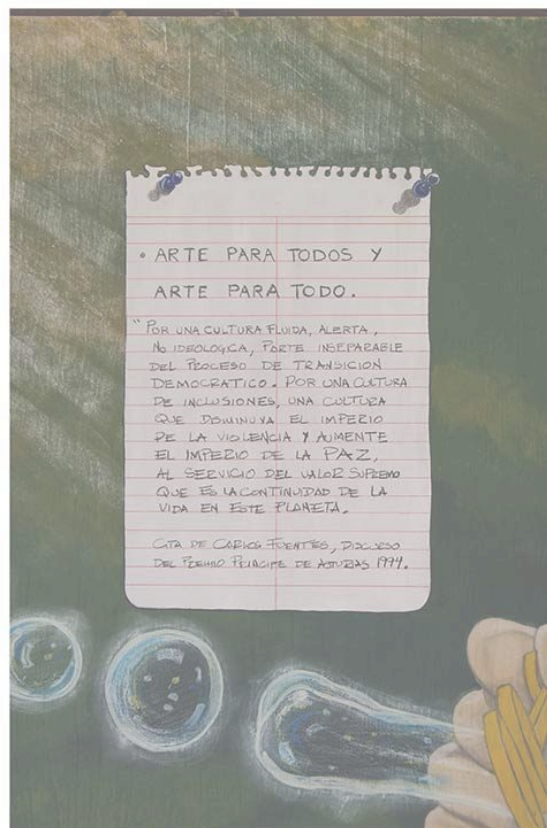 • ARTE PARA TODOS Y
ARTE PARA TODO.
“POR UNA CULTURA FLUIDA, ALERTA,
NO IDEOLOGICA, PARTE INSEPARABLE
DEL PROCESO DE TRANSICION
DEMOCRATICO. POR UNA CULTURA
DE INCLUSIONES, UNA CULTURA
QUE DISMINUYA EL IMPERIO
DE LA VIOLENCIA Y AUMENTE
EL IMPERIO DE LA PAZ,
AL SERVICIO DEL VALOR SUPREMO
QUE ES LA CONTINUIDAD DE LA
VIDA EN ESTE PLANETA.
CITA DE CARLOS FUENTES, DISCURSO
DEL PREMIO PRINCIPE DE ASTURIAS 1994.